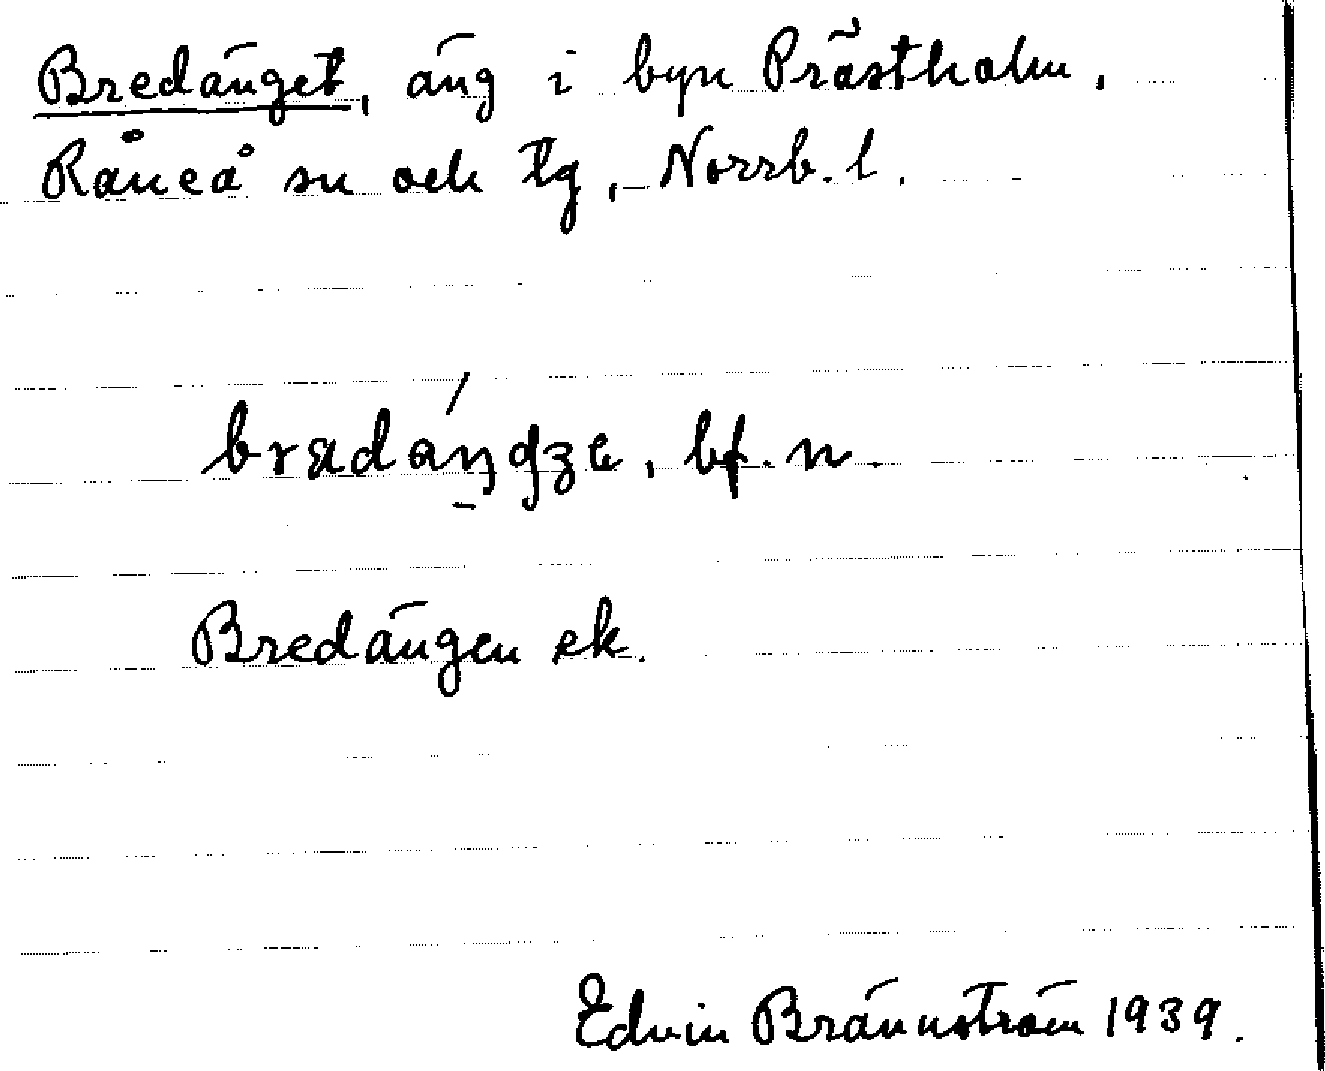 Bredänget, äng i byn Prästholm,
Råneå sn och tg, Norrb. l.
bf. n.
Bredängen ek.
Edvin Brännström 1939.